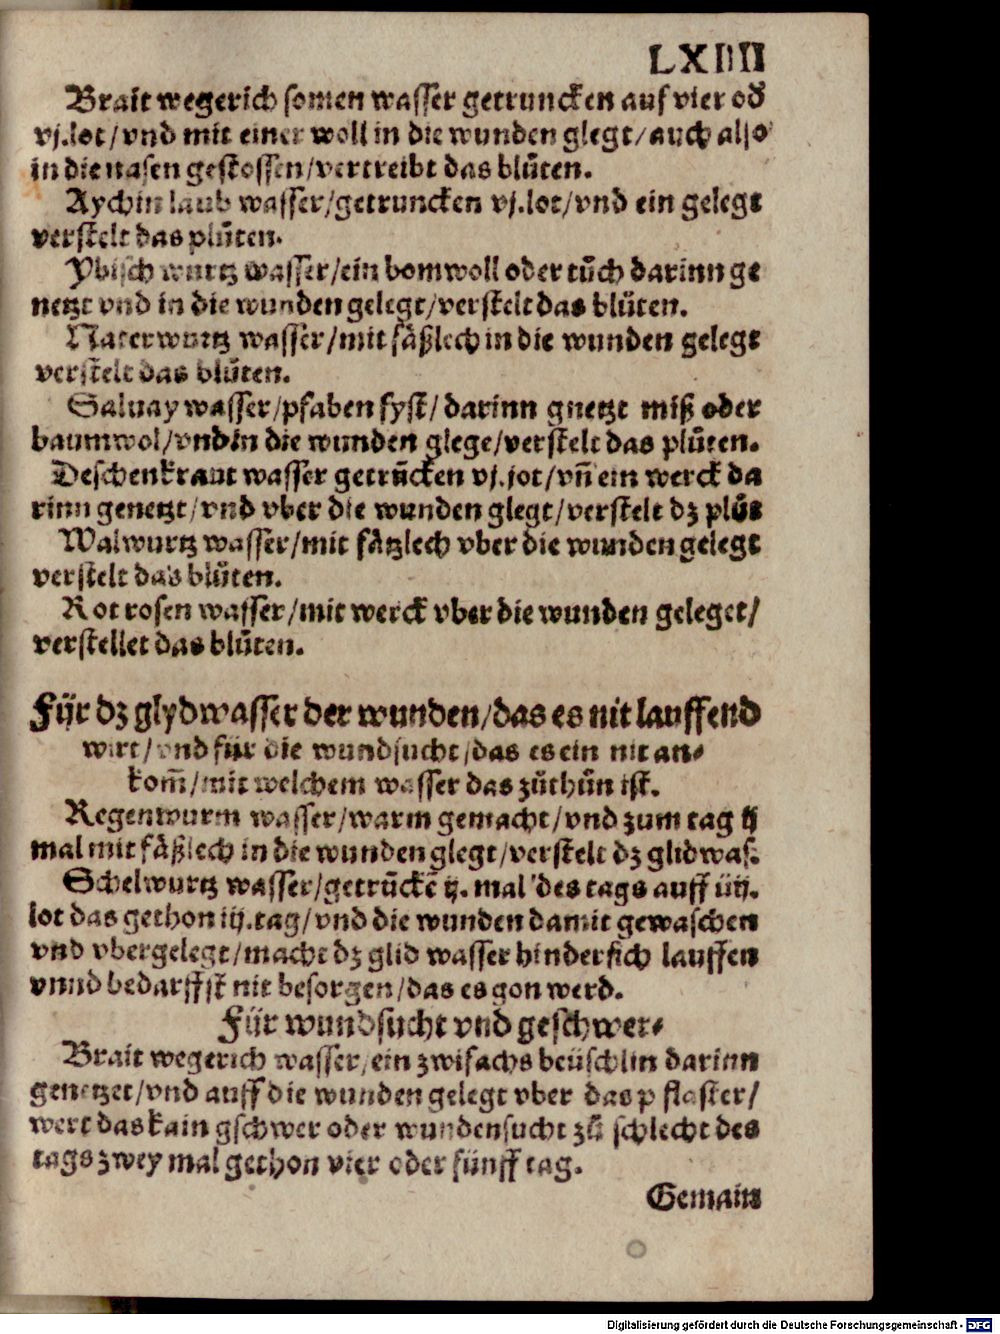 LXIIII
Brait wegerich somen wasser getruncken auf vier od
vj.lot/vnd mit einer woll in die wunden glegt/auch also
in die nasen gestossen/vertreibt das blůten.
Aychin laub wasser/getruncken vj.lot/vnd ein gelegt
verstelt das plůten.
Ybisch wurtz wasser/ein bomwoll oder tůch darinn ge
netzt vnd in die wunden gelegt/verstelt das blůten.
Naterwurtz wasser/mit fäßlech in die wunden gelegt
verstelt das blůten.
Saluay wasser/pfaben fyst/darinn gnetzt miß oder
baumwol/vnd in die wunden glege/verstelt das plůten.
Deschenkraut wasser getrūcken vj.jot/vn̄ ein werck da
rinn genetzt/vnd vber die wunden glegt/verstelt dz plůt
Walwurtz wasser/mit fätzlech vber die wunden gelegt
verstelt das blůten.
Rot rosen wasser/mit werck vber die wunden geleget/
verstellet das blůten.
Für dz glydwasser der wunden/das es nit lauffend
wirt/vnd für die wundsucht/das es ein nit an⸗
kom̄/mit welchem wasser das zůthůn ist.
Regenwurm wasser/warm gemacht/vnd zum tag ij
mal mit fäßlech in die wunden glegt/verstelt dz glidwas.
Schelwurtz wasser/getrūckē ij. mal des tags auff iiij.
lot das gethon iij.tag/vnd die wunden damit gewaschen
vnd vbergelegt/macht dz glid wasser hindersich lauffen
vnnd bedarffst nit besorgen/das es gon werd.
Für wundsucht vnd geschwer⸗
Brait wegerich wasser/ein zwifachs beüschlin darinn
genetzet/vnd auff die wunden gelegt vber das pflaster/
wert das kain gschwer oder wundensucht zů schlecht des
tags zwey mal gethon vier oder fünff tag.
Gemain
Digitalisierung gefördert durch die Deutsche Forschungsgemeinschaft - DFG